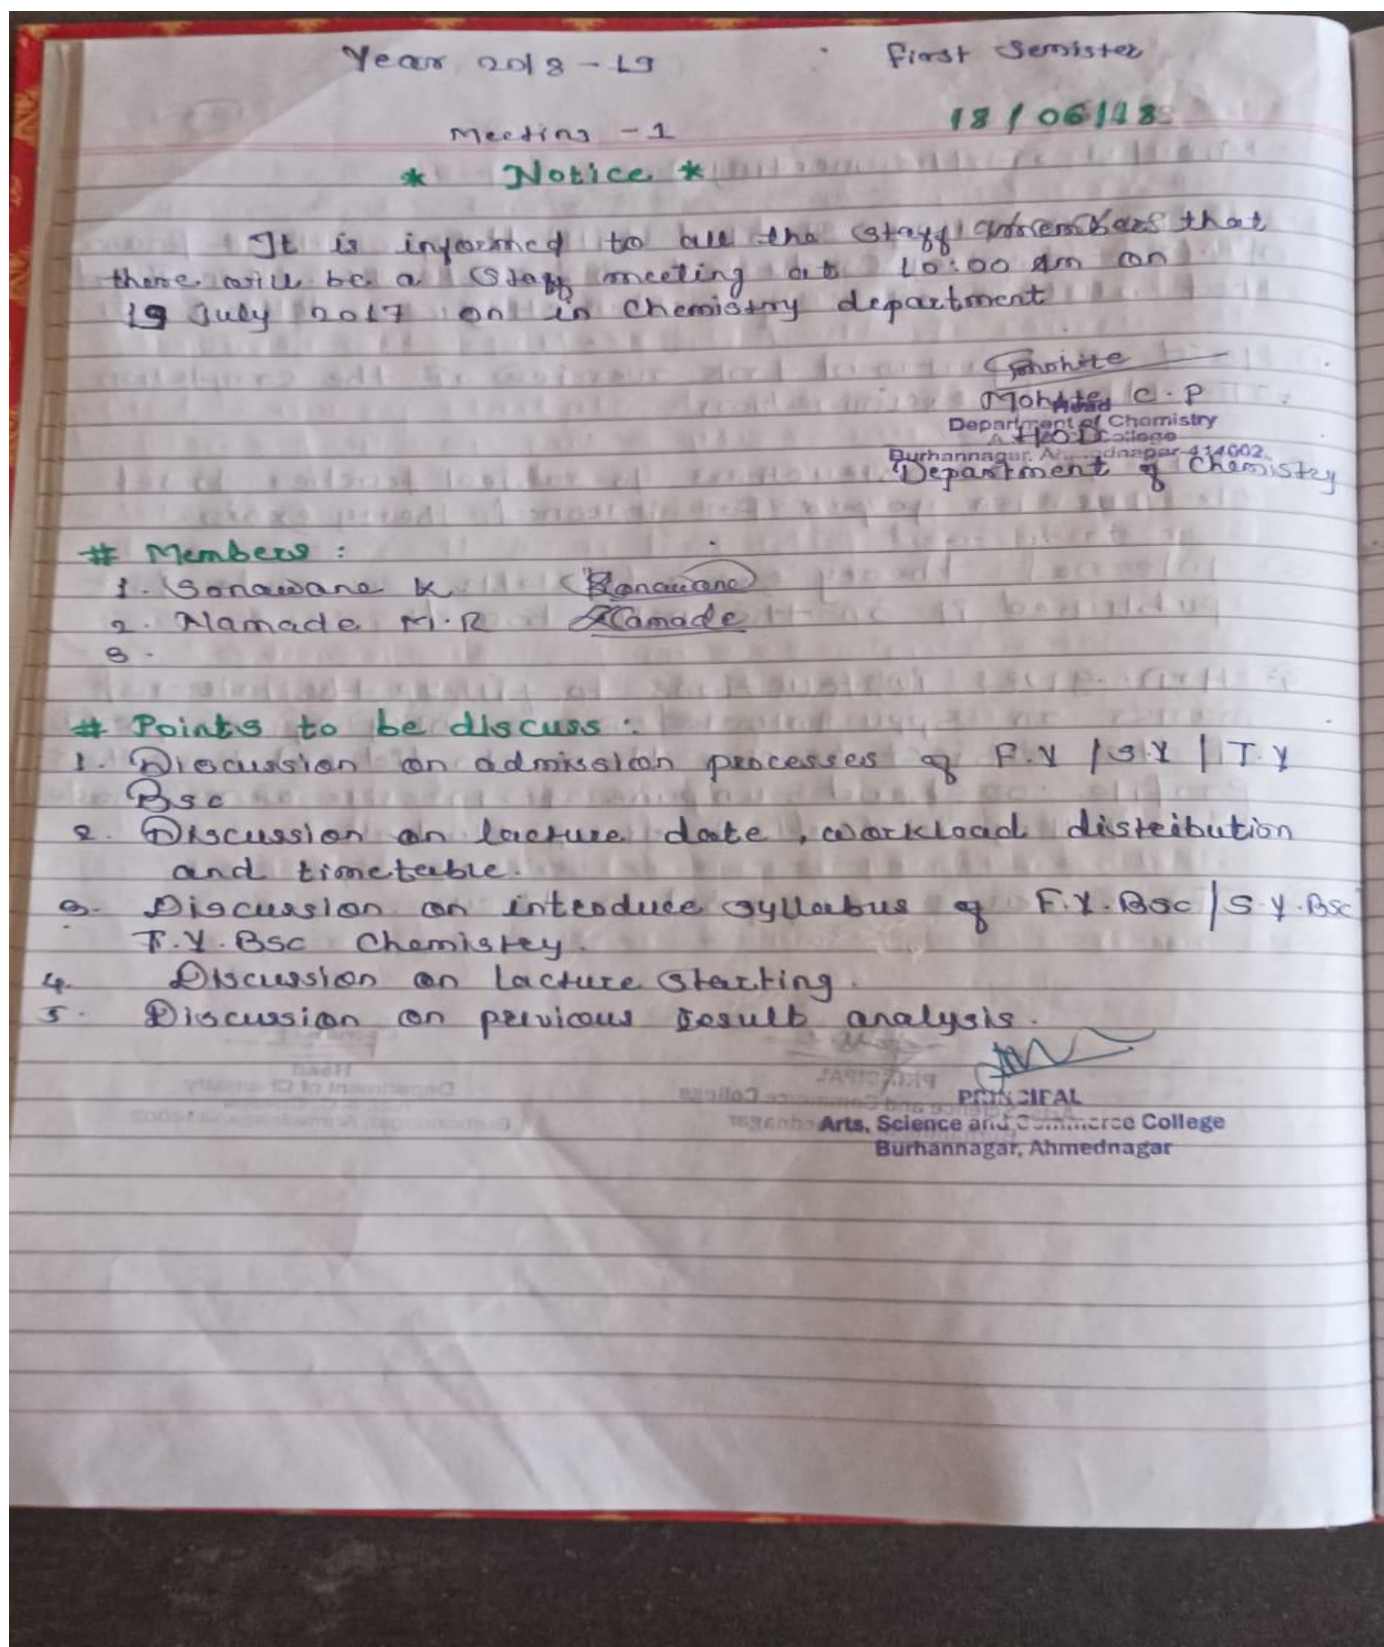 Year 2018-19
First Semister
18/06/18
Meeting - 1
* Notice *
It is informed to all the staff members that
there will be a staff meeting at 10:00 Am on
19 July 2017 on in Chemistry department
Mohite
Mohite C.P
Head
Department of Chemistry
H.O.D College
Burhannagar, 414002.
Department of Chemistry
# Members :
1. Sonawane K. Sonawane
2. Namade M.R Namade
3.
# Points to be discuss :
1. Discussion on admission processes of F.Y / S.Y / T.Y
Bsc
2. Discussion on lacture date, workload distribution
and timetable.
3. Discussion on introduce syllabus of F.Y.Bsc / S.Y.Bsc
T.Y.Bsc Chemistry.
4. Discussion on lacture starting.
5. Discussion on pervious result analysis.
PRINCIPAL
Arts, Science and Commerce College
Burhannagar, Ahmednagar